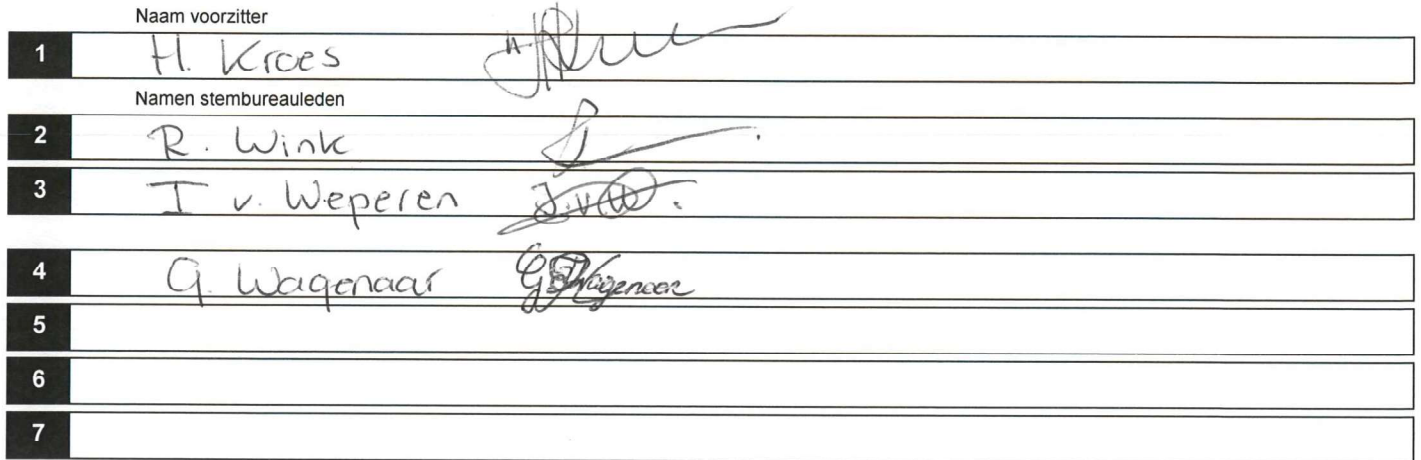 Naam voorzitter
1 H. Kroes
Namen stembureauleden
2 R. Wink
3 I v. Weperen I.v.W.
4 G. Wagenaar G Wagenaar
5
6
7